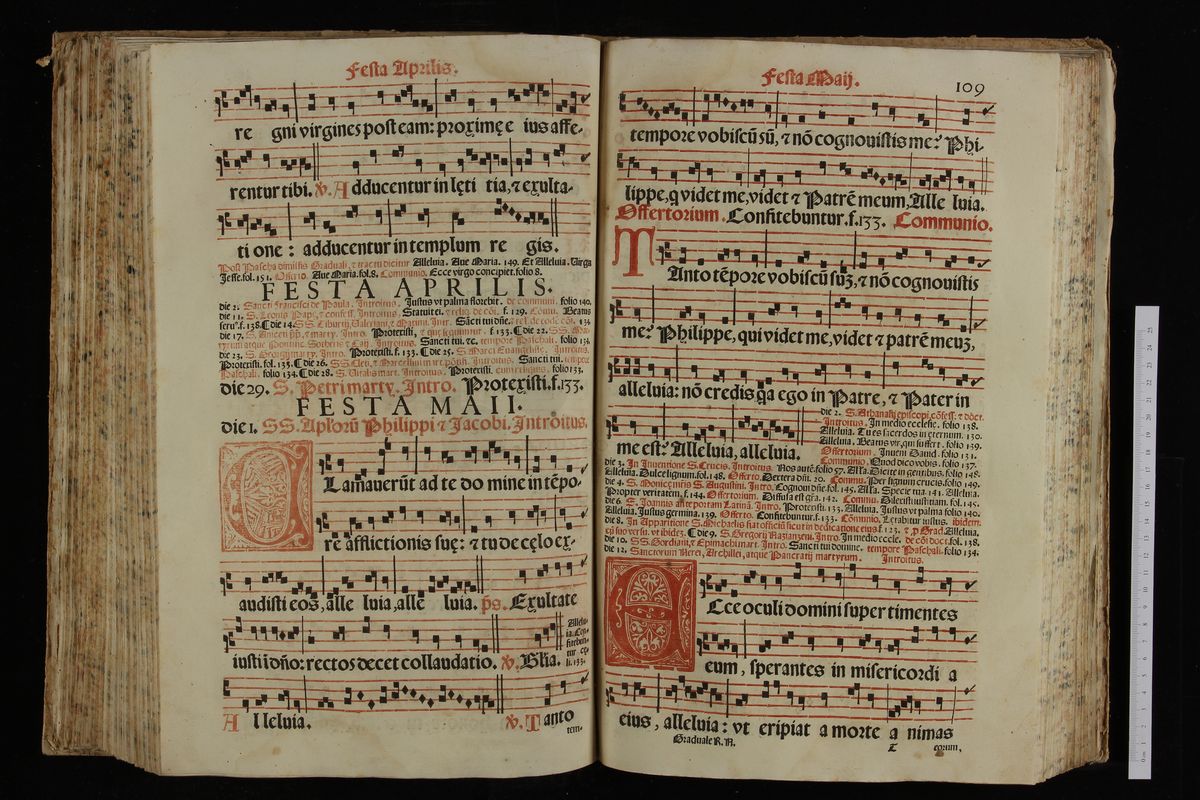 Festa Aprilis.
re gni virgines post eam: proximę e ius affe-
rentur tibi. ℣. A dducentur in lęti tia, ⁊ exulta-
ti one : adducentur in templum re gis.
Post Pascha dimissis Graduali, ⁊ tractu dicitur Alleluia. Aue Maria. 149. Et Alleluia. Virga
Jesse. fol. 151. Offerto. Aue Maria. fol. 8. Communio. Ecce virgo concipiet. folio 8.
FESTA APRILIS.
die 2. Sancti Francisci de Paula. Introitus. Justus vt palma florebit. de communi. folio 140.
die 11. S. Leonis Pape, ⁊ confess. Introitus. Statuit ei. f. 129. Beatus
seru⁹. f. 138. ☾die 14. SS. Tiburtij, Valeriani, ⁊ Maximi. Intr. Sācti tui dn̄e. 134
die 17. S. Aniceti ⁊ marty. Intro. Protexisti, f 133. ☾die 22. SS.
Introitus. Sancti tui. ⁊c. tempore Paschali. folio 134.
die 23. S. Georgij marty. Intro. Protexisti. f. 133. ☾die 25. S. Marci Euangeliste. Introitus.
Protexisti. fol. 133. ☾die 26. SS. Cleti, ⁊ Marcellini Introitus. Sancti tui. tempore
Paschali. folio 134. ☾die 28. S. Vitalis mart. Introitus. Protexisti. folio 133.
die 29. S. Petri marty. Intro. Protexisti. f. 133.
FESTA MAII.
die 1. SS. Aplorū Philippi ⁊ Jacobi. Introitus.
C Lamauerūt ad te do mine in tēpo-
re afflictionis suę: ⁊ tu de cęlo ex-
audisti eos, alle luia, alle luia. ps. Exultate
iusti i dn̄o: rectos decet collaudatio. ℣. Glīa.
Allelu-
ia. Con-
fitebun-
tur cę-
li. 133.
A lleluia. ℣. Tanto
tem-
Festa Maij. 109
tempore vobiscū sū, ⁊ nō cognouistis me? Phi-
lippe, q videt me, videt ⁊ Patrē meum, Alle luia.
Offertorium. Confitebuntur. f. 133. Communio.
T Anto tēpore vobiscū suʒ, ⁊ nō cognouistis
me? Philippe, qui videt me, videt ⁊ patrē meuʒ,
alleluia: nō credis qa ego in Patre, ⁊ Pater in
me est? Alleluia, alleluia.
die 2. S. Athanasij episcopi, cōfess. ⁊ doct.
Introitus. In medio ecclesię. folio 138.
Alleluia. Tu es sacerdos in ęternum. 130.
Alleluia. Beatus vir, qui suffert. folio 139.
Offertorium. Inueni Dauid. folio 131.
Communio. Quod dico vobis. folio 137.
die 3. In Inuentione S. Crucis. Introitus. Nos autē. folio 57. Alla. Dicite in gentibus. folio 148.
Alleluia. Dulce lignum. fol. 148. Offerto. Dextera dn̄i. 20. Commu. Per signum crucis. folio 149.
die 4. S. Monicę matris S. Augustini. Intro. Cognoui dn̄e. fol. 145. Alla. Specie tua. 141. Alleluia.
Propter veritatem. f. 144. Offertorium. Diffusa est gr̄a. 142. Commu. Dilexisti iustitiam. fol. 145.
die 6. S. Joannis ante portam Latinā. Intro. Protexisti. 133. Alleluia. Justus vt palma folio 140.
Alleluia. Justus germina. 139. Offerto. Confitebuntur. f. 133. Cōmunio. Lętabitur iustus. ibidem.
die 8. In Apparitione S. Michaelis fiat officiū sicut in dedicatione eius f. 123. ⁊ p Grad. Alleluia,
cū suo versu. vt ibideʒ. ☾die 9. S. Gregorij Nazianzeni. Intro. In medio eccle. de cōi doct. fol. 138.
die 10. SS. Gordiani, ⁊ Epimachi mart. Intro. Sancti tui domine. tempore Paschali. folio 134.
die 12. Sanctorum Nerei, Archillei, atque Pancratij martyrum. Introitus.
E Cce oculi domini super timentes
eum, sperantes in misericordi a
eius, alleluia: vt eripiat a morte a nimas
Graduale R. R. T eorum,